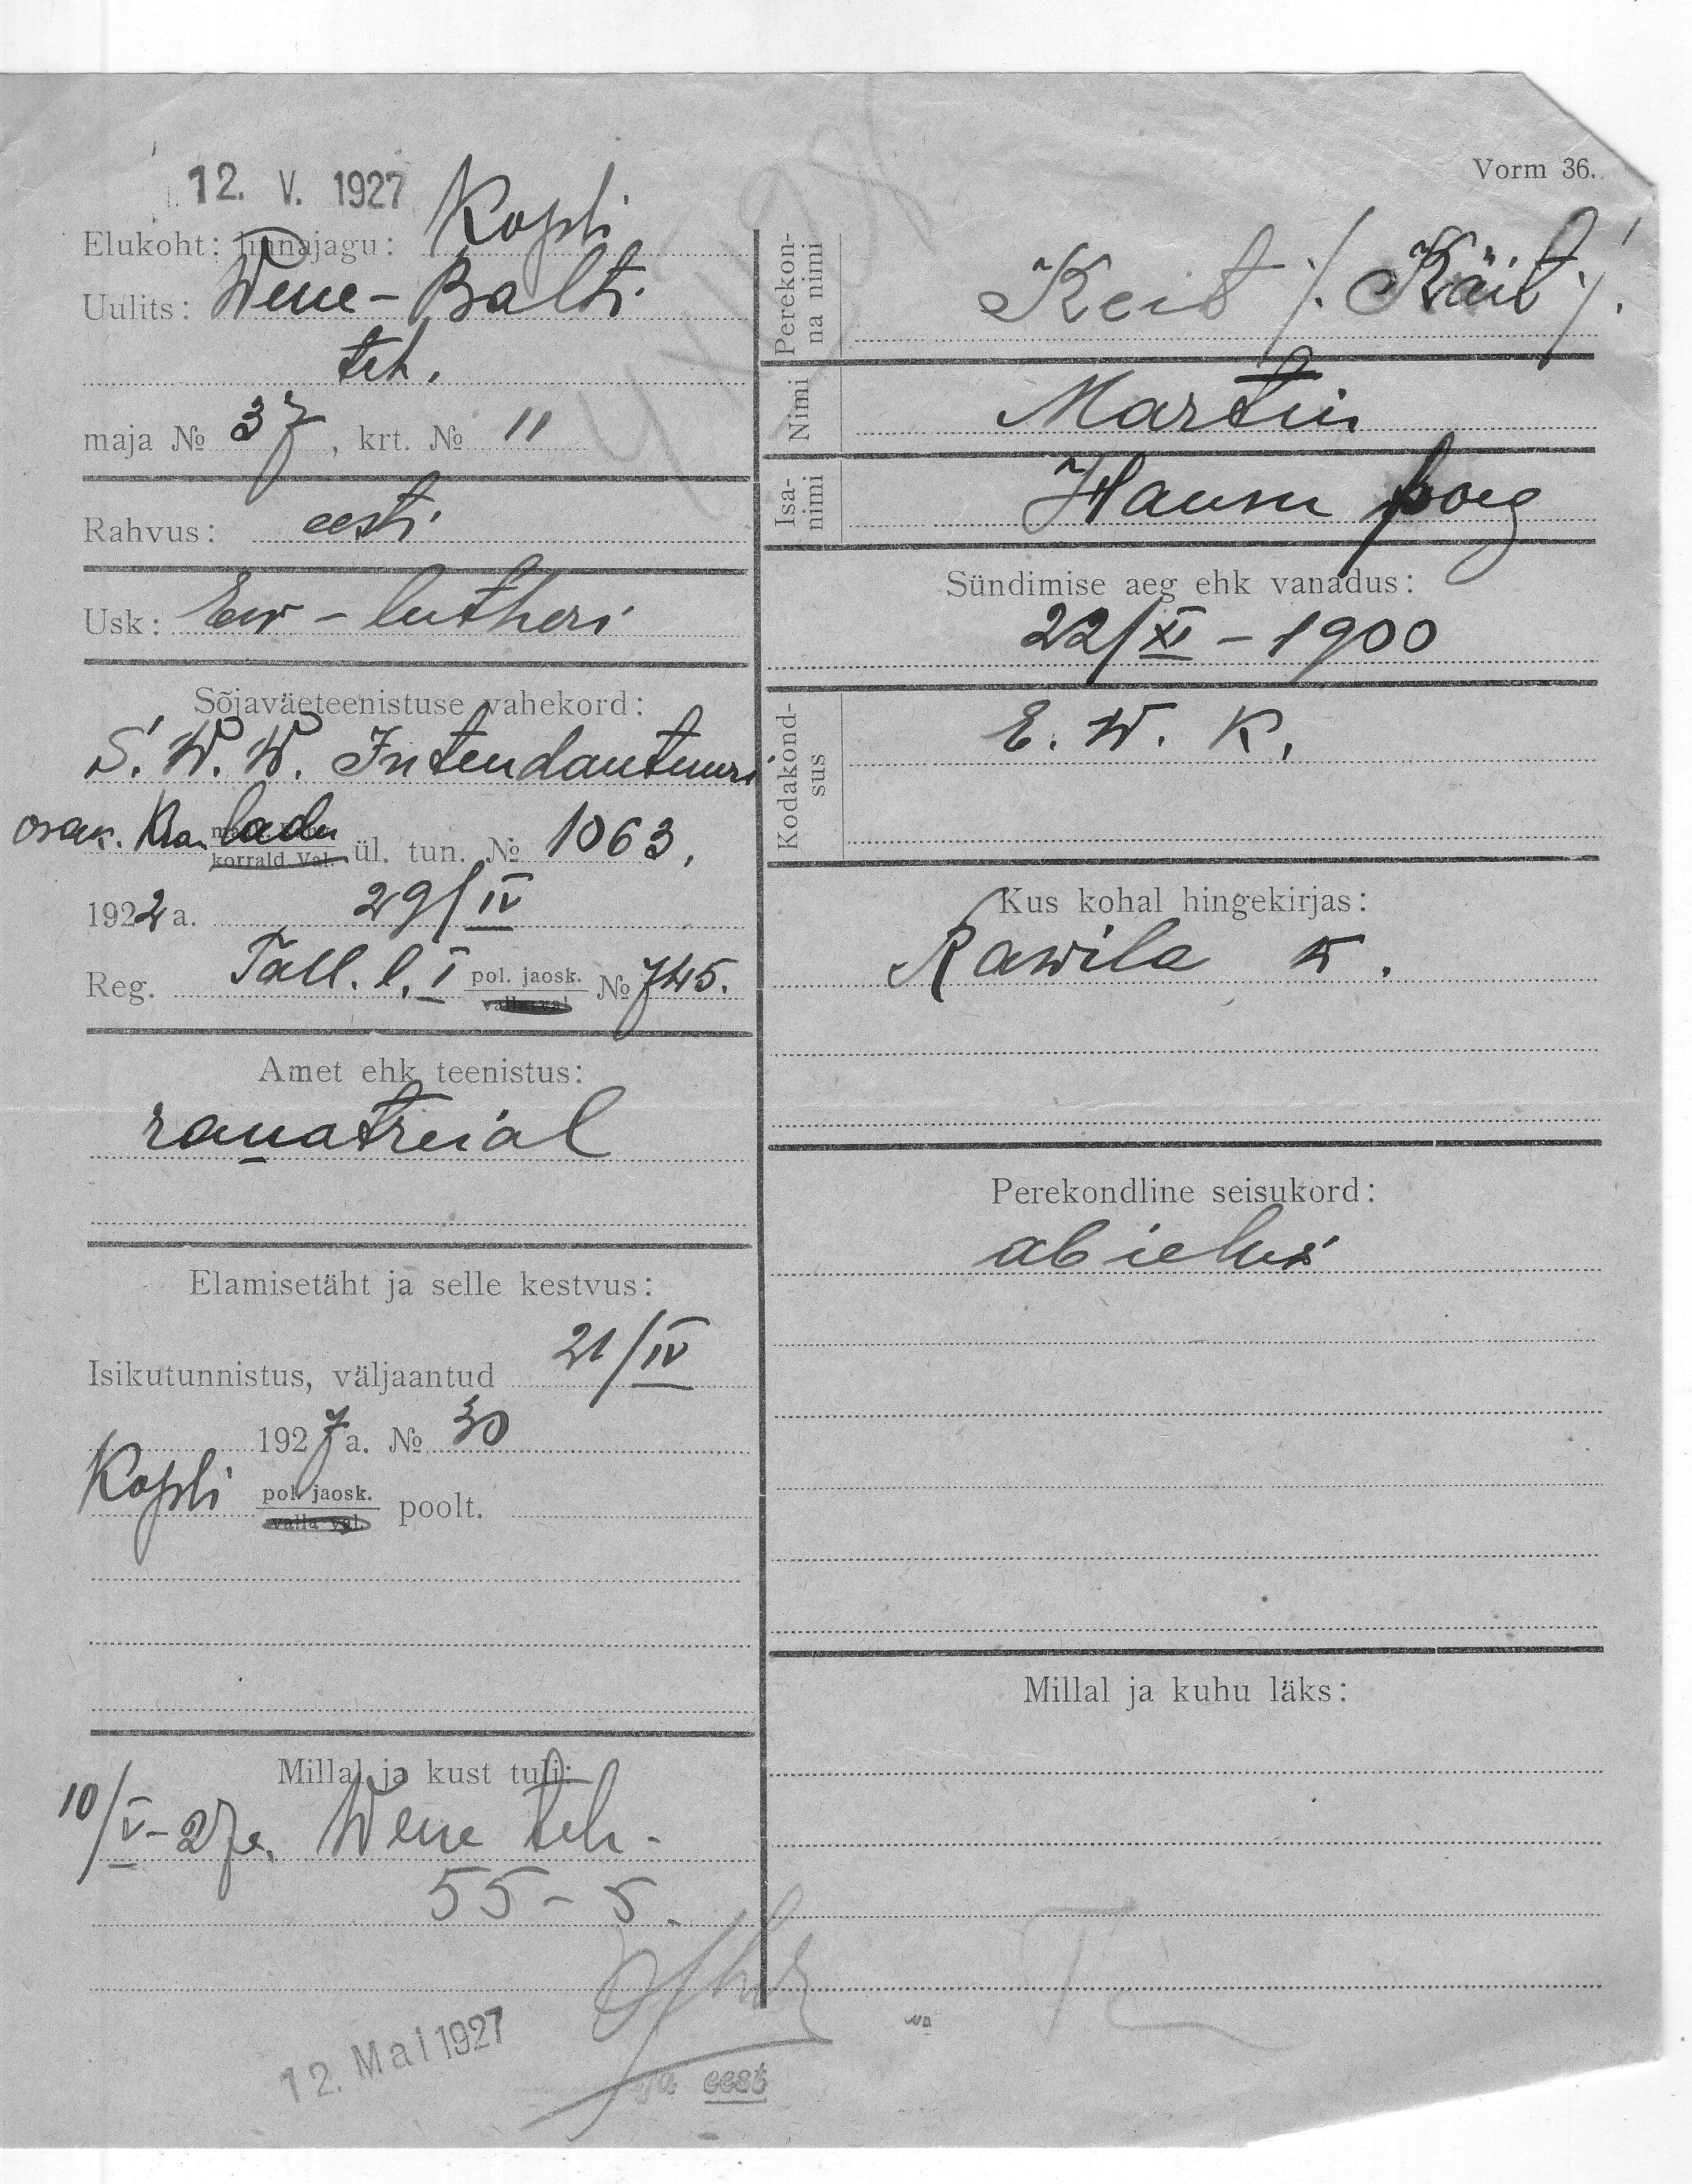 12. V. 1927
Vorm 36.
Elukoht: linnajagu: Kopli
Uulits: Wene-Balti
teh.
maja № 37, krt. № 11
Rahvus: eesti
Usk: Ew-lutheri
Sõjaväeteenistuse vahekord:
S. W. W. Intendantuuri
osak. ladu korrald. Val. ül. tun. № 1063,
1922 a. 29/IV
Reg. Tall. l. I pol. jaosk. valla val. № 745.
Amet ehk teenistus:
rauatreial
Elamisetäht ja selle kestvus:
Isikutunnistus, väljaantud 21/IV
1927 a. № 30
Kopli pol. jaosk. valla val. poolt.
Millal ja kust tuli:
10/V-27a. Wene teh-
55-5.
12. Mai 1927
eest
Perekonna nimi
Keit /. Käit ./.
Nimi
Martin
Isanimi
Hansu poeg
Sündimise aeg ehk vanadus:
22/XI-1900
Kodakondsus
E. W. K.
Kus kohal hingekirjas:
Rawila w.
Perekondline seisukord:
abielus
Millal ja kuhu läks: